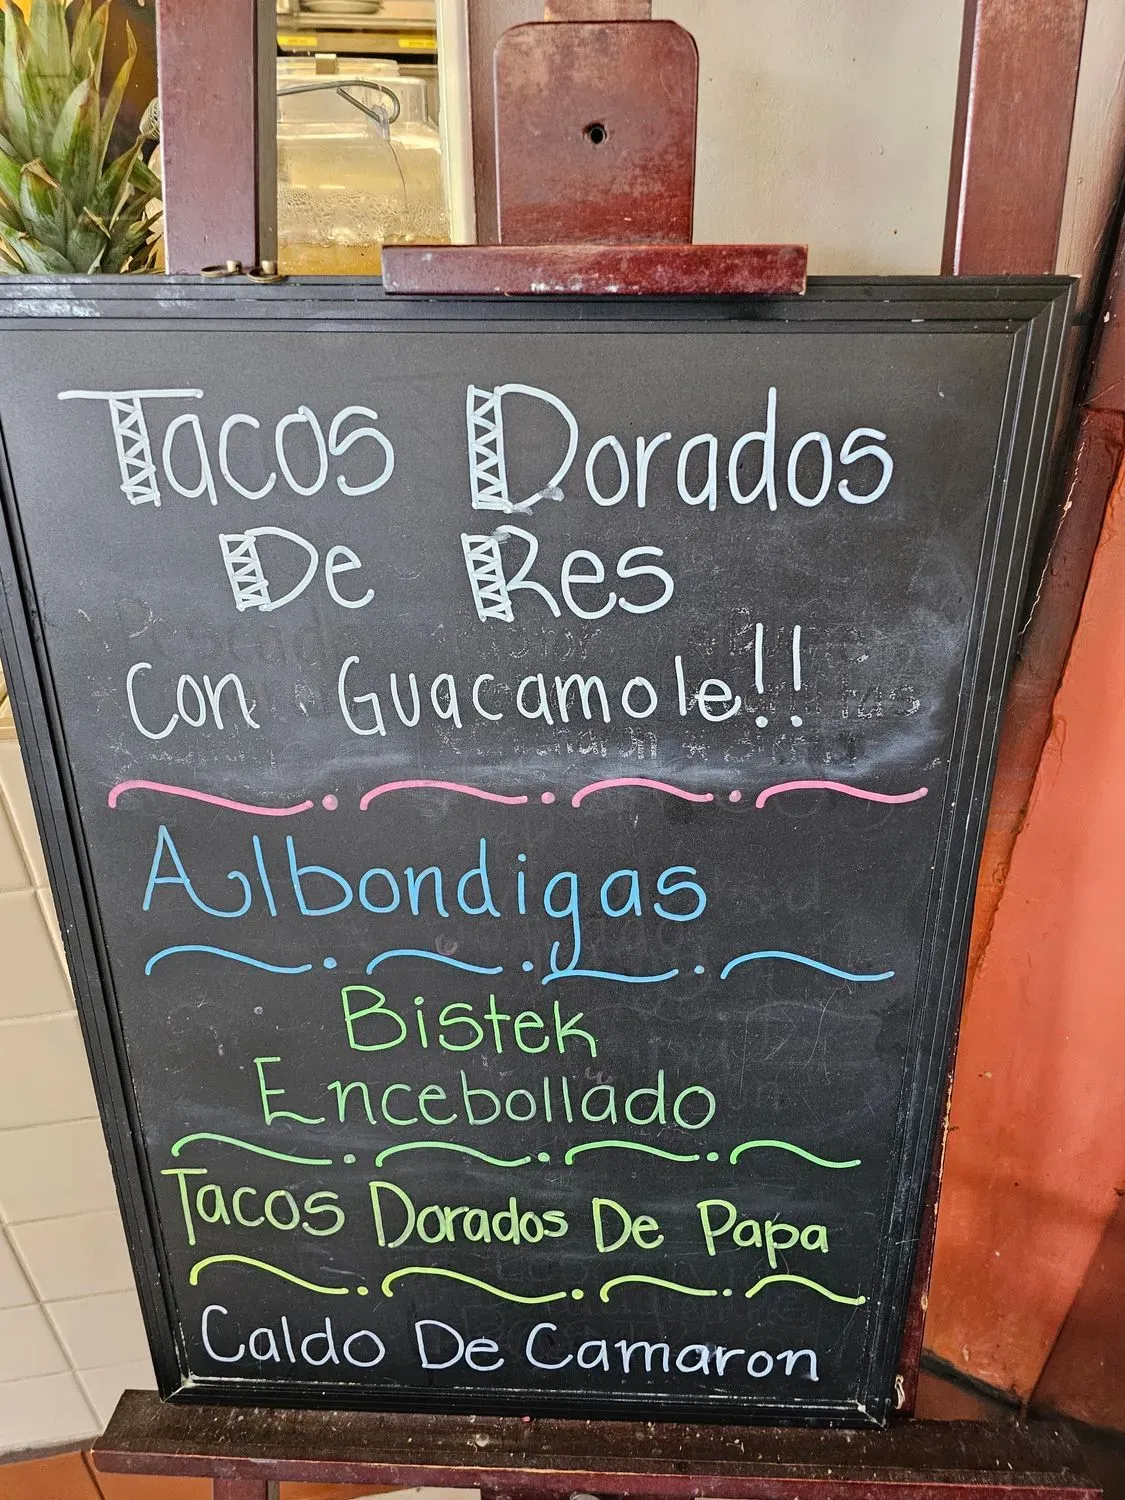 Tacos Dorados
De Res
Con Guacamole!!
Albondigas
Bistek
Encebollado
Tacos Dorados De Papa
Caldo De Camaron